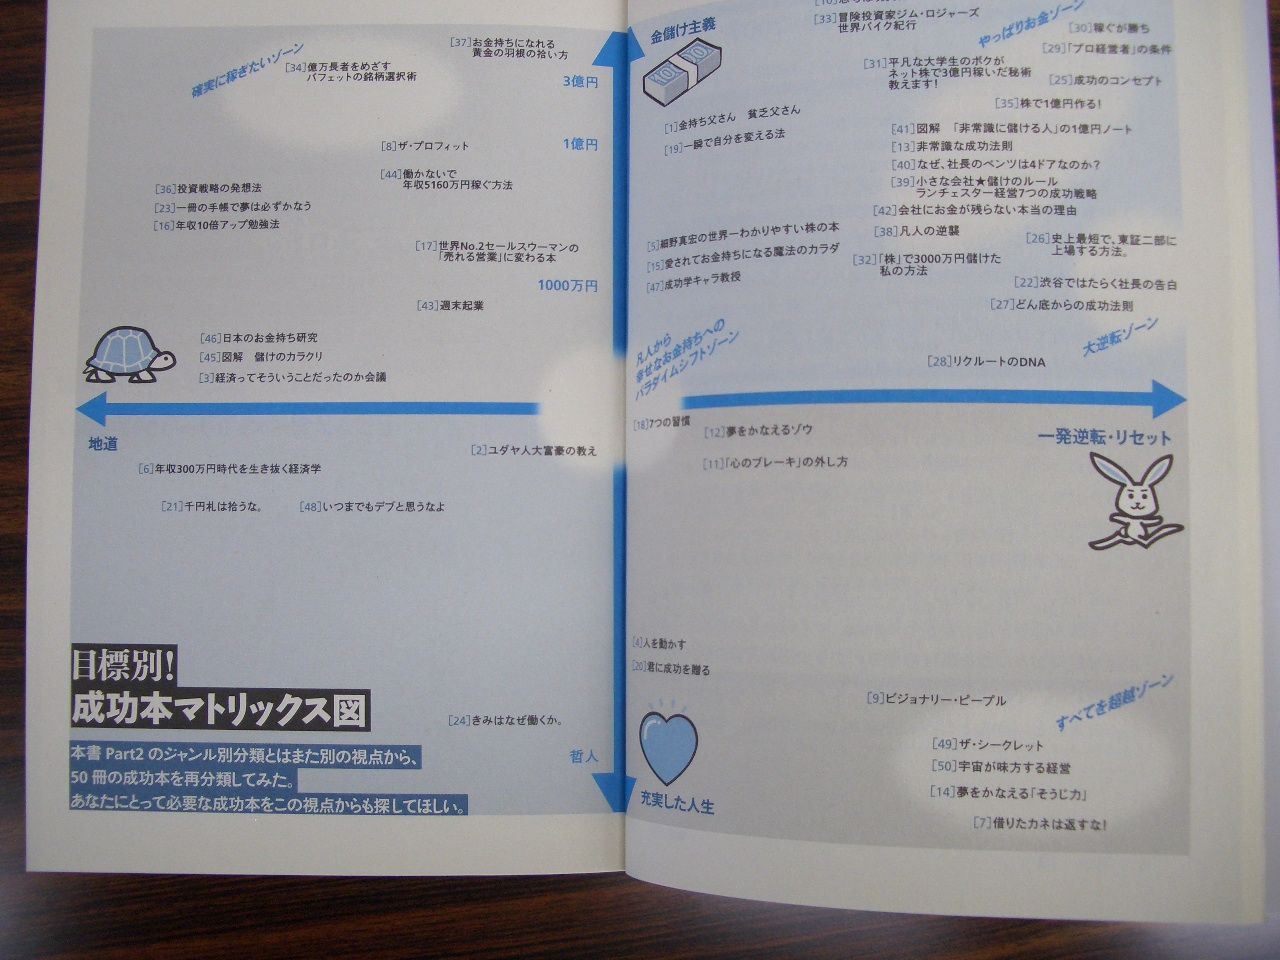 確実に稼ぎたいゾーン
[37]お金持ちになれる
黄金の羽根の拾い方
[34]億万長者をめざす
バフェットの銘柄選択術
3億円
[8]ザ・プロフィット
1億円
[44]働かないで
年収5160万円稼ぐ方法
[36]投資戦略の発想法
[23]一冊の手帳で夢は必ずかなう
[16]年収10倍アップ勉強法
[17]世界No.2セールスウーマンの
「売れる営業」に変わる本
1000万円
[43]週末起業
[46]日本のお金持ち研究
[45]図解 儲けのカラクリ
[3]経済ってそういうことだったのか会議
地道
[2]ユダヤ人大富豪の教え
[6]年収300万円時代を生き抜く経済学
[21]千円札は拾うな。
[48]いつまでもデブと思うなよ
目標別!
成功本マトリックス図
本書 Part2 のジャンル別分類とはまた別の視点から、
50 冊の成功本を再分類してみた。
あなたにとって必要な成功本をこの視点からも探してほしい。
[24]きみはなぜ働くか。
哲人
金儲け主義
[33]冒険投資家ジム・ロジャーズ
世界バイク紀行
やっぱりお金ゾーン
[30]稼ぐが勝ち
[29]「プロ経営者」の条件
[31]平凡な大学生のボクが
ネット株で3億円稼いだ秘術
教えます!
[25]成功のコンセプト
[35]株で1億円作る!
[1]金持ち父さん 貧乏父さん
[19]一瞬で自分を変える法
[41]図解 「非常識に儲ける人」の1億円ノート
[13]非常識な成功法則
[40]なぜ、社長のベンツは4ドアなのか?
[39]小さな会社★儲けのルール
ランチェスター経営7つの成功戦略
[42]会社にお金が残らない本当の理由
[5]細野真宏の世界一わかりやすい株の本
[38]凡人の逆襲
[26]史上最短で、東証二部に
上場する方法。
[15]愛されてお金持ちになる魔法のカラダ
[32]「株」で3000万円儲けた
私の方法
[47]成功学キャラ教授
[22]渋谷ではたらく社長の告白
[27]どん底からの成功法則
凡人から
幸せなお金持ちへの
パラダイムシフトゾーン
大逆転ゾーン
[28]リクルートのDNA
[18]7つの習慣
[12]夢をかなえるゾウ
一発逆転・リセット
[11]「心のブレーキ」の外し方
[4]人を動かす
[20]君に成功を贈る
[9]ビジョナリー・ピープル
すべてを超越ゾーン
[49]ザ・シークレット
[50]宇宙が味方する経営
[14]夢をかなえる「そうじ力」
充実した人生
[7]借りたカネは返すな!